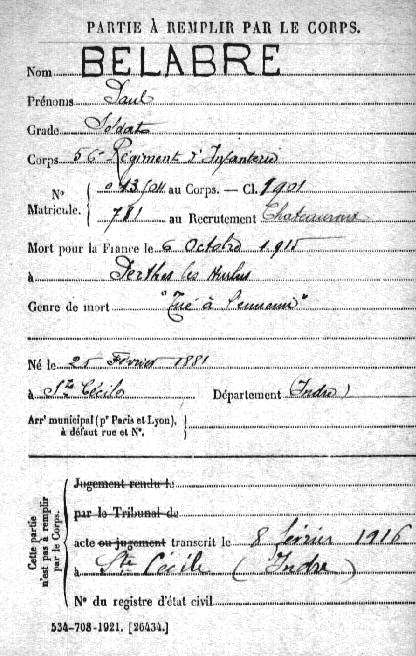 PARTIE À REMPLIR PAR LE CORPS.
Nom BELABRE
Prénoms Paul
Grade Soldat
Corps 56e Régiment d'Infanterie
N° Matricule. 013.504 au Corps. — Cl. 1901
781 au Recrutement Chateauroux
Mort pour la France le 6 Octobre 1915
à Perthes les Hurlus
Genre de mort "Tué à l'ennemi"
Né le 25 Février 1881
à Ste Cécile Département (Indre)
Arrt municipal (pr Paris et Lyon), à défaut rue et N°.
Cette partie n'est pas à remplir par le Corps.
Jugement rendu le
par le Tribunal de
acte ou jugement transcrit le 8 février 1916
à Ste Cécile (Indre)
N° du registre d'état civil
534-708-1921. [26434.]